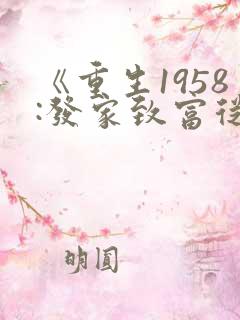 《重生1958
:發家致富從
明圓